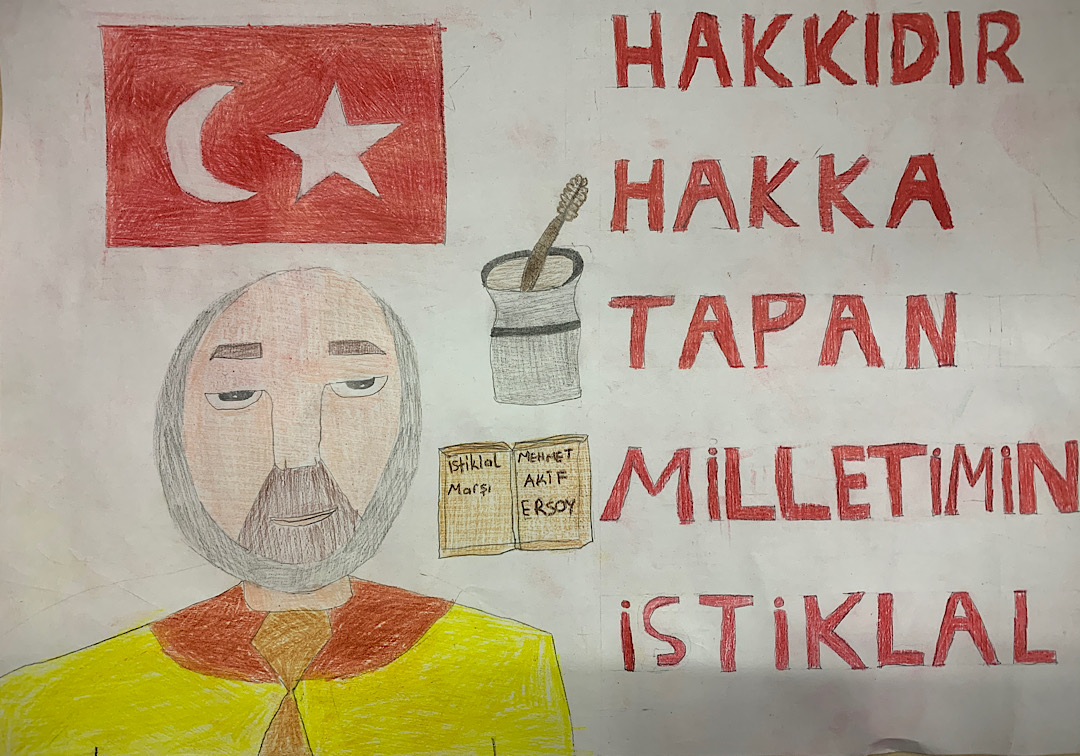 HAKKIDIR
HAKKA
TAPAN
MİLLETİMİN
İSTİKLAL
istiklal
Marşı
MEHMET
AKİF
ERSOY